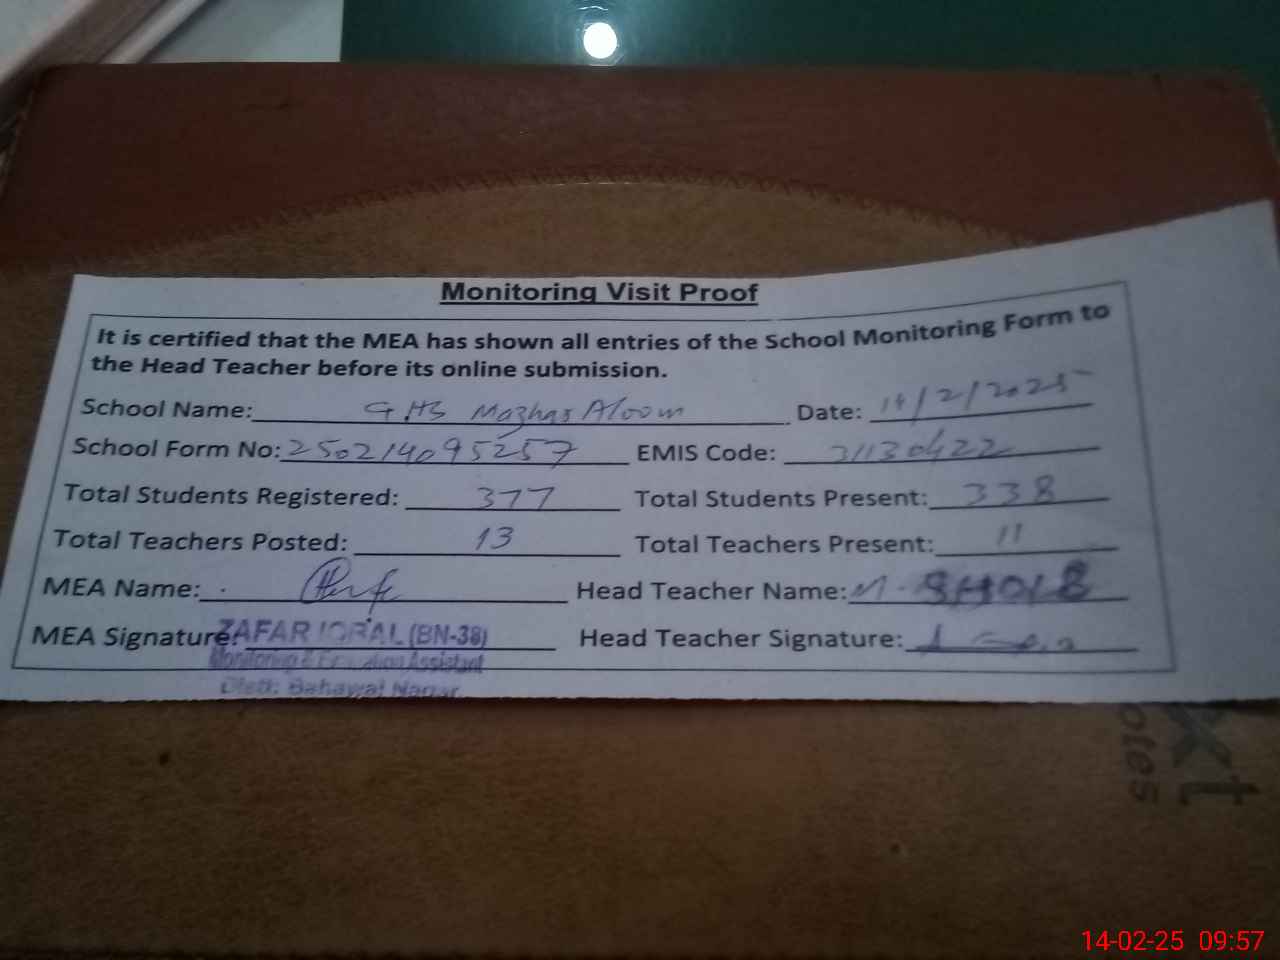 Monitoring Visit Proof
It is certified that the MEA has shown all entries of the School Monitoring Form to
the Head Teacher before its online submission.
School Name: GHS Mazhar Aloom Date: 14/2/2025
School Form No: 250214095257 EMIS Code: 31130422
Total Students Registered: 377 Total Students Present: 338
Total Teachers Posted: 13 Total Teachers Present: 11
MEA Name: Head Teacher Name: M. SHOIB
MEA Signature: Head Teacher Signature:
ZAFAR IQBAL (BN-38)
Monitoring & Evaluation Assistant
Distt: Bahawal Nagar.
xt
otes
14-02-25 09:57